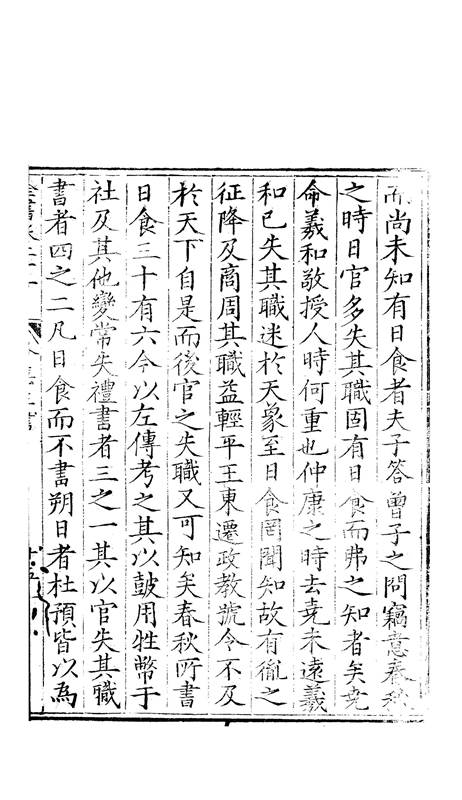 而尚未知有日食者夫子答曾子之問竊意春秋
之時日官多失其職固有日食而弗之知者矣堯
命羲和敬授人時何重也仲康之時去堯未遠羲
和已失其職迷於天象至日食罔聞知故有胤之
征降及商周其職益輕平王東遷政教號令不及
於天下自是而後官之失職又可知矣春秋所書
日食三十有六今以左傳考之其以鼓用牲幣于
社及其他變常失禮書者三之一其以官失其職
書者四之二凡日食而不書朔日者杜預皆以為